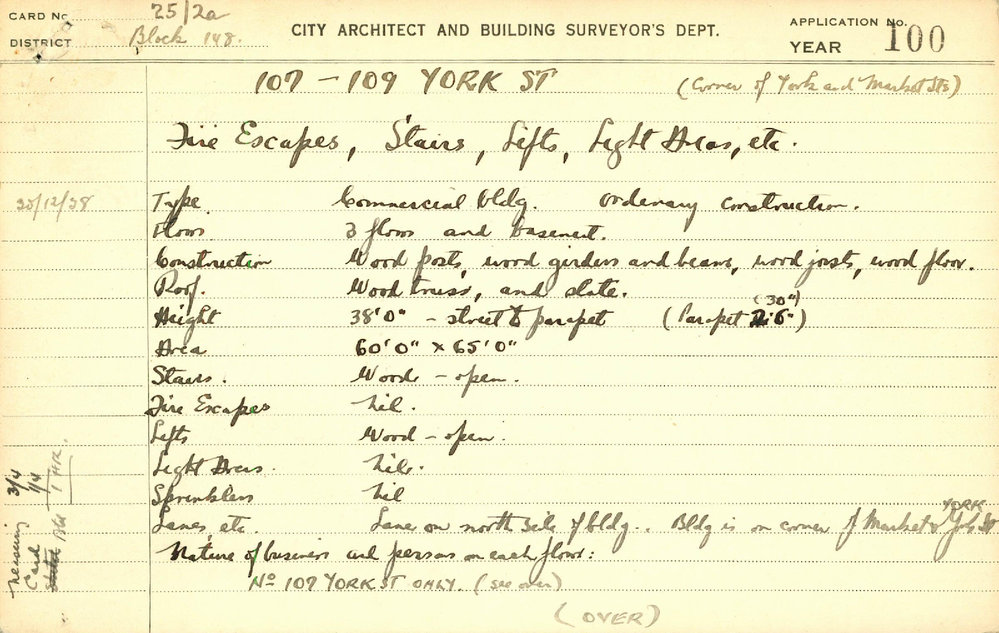 CARD No. 25/2a
DISTRICT Block 148.
CITY ARCHITECT AND BUILDING SURVEYOR'S DEPT.
APPLICATION No.
YEAR 100
107 - 109 YORK ST (Corner of York and Market Sts)
Fire Escapes, Stairs, Lifts, Light Areas, etc.
Type Commercial bldg. Ordinary construction.
Floors 3 floors and basement.
Construction Wood posts, wood girders and beams, wood joists, wood floor.
Roof. Wood truss, and slate.
(30")
Height 38'0" - street to parapet (Parapet 2'6")
Area 60'0" x 65'0"
Stairs. Wood - open.
Fire Escapes Nil.
Lifts Wood - open.
Light Areas. Nil.
Sprinklers Nil
YORK
Lanes, etc. Lane on north side of bldg.. Bldg is on corner of Market & St
Nature of business and persons on each floor:
No 107 YORK ST ONLY. (see over)
(OVER)
3/4 1/4 1 HR.
Card